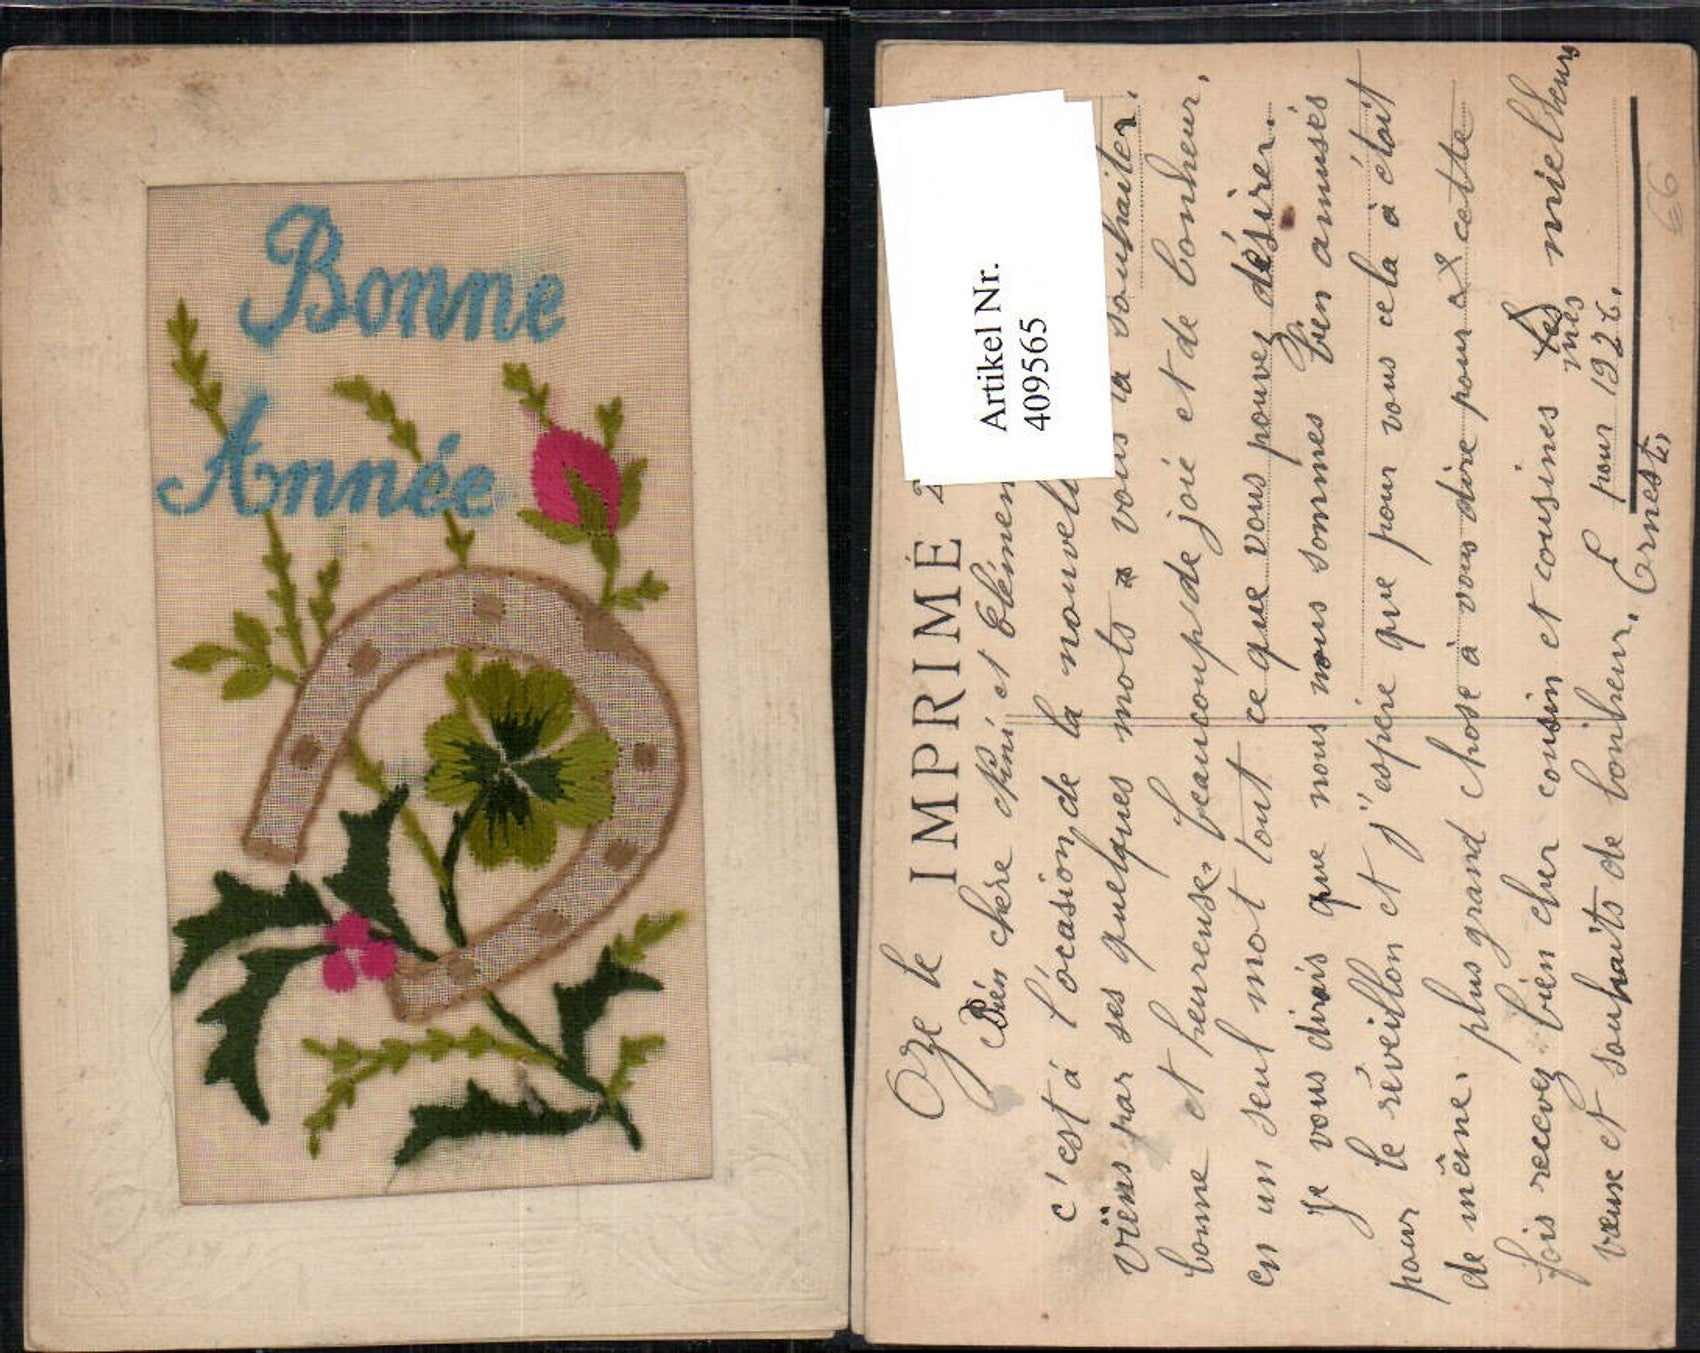 Bonne
Année
Artikel Nr.
409565
IMPRIMÉ
Oze le
Bien chère Nini et Clémen
c'est à l'ocasion de la nouvell
viens par ses quelques mots vous la souhaiter.
bonne et heureuse. beaucoup de joie et de bonheur,
en un seul mot tout ce que vous pouvez désirer.
Je vous dirais que nous nous sommes bien amusés
pour le réveillon et j'espère que pour vous cela à étoit
de même. plus grand chose à vous dire pour cette
fois recevez bien cher cousin et cousines mes mielleurs
vœux et souhaits de bonheur. pour 1926.
Ernest.
66